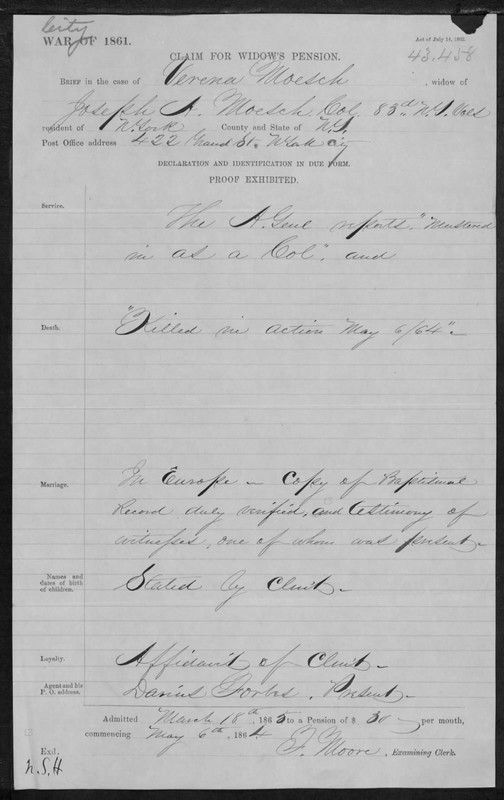 City
WAR OF 1861.
Act of July 14, 1862.
43.458
CLAIM FOR WIDOW'S PENSION.
BRIEF in the case of Verena Moesch, widow of
Joseph A. Moesch Col. 83d N.Y. Vols
resident of N York County and State of N.Y.
Post Office address 422 Grand St. N York City
DECLARATION AND IDENTIFICATION IN DUE FORM.
PROOF EXHIBITED.
Service.
The A. Genl reports, "Mustered
in as a Col", and
Death.
"Killed in action May 6/64"-
Marriage.
In Europe - Copy of Baptismal
Record duly verified, and testimony of
witnesses, one of whom was present-
Names and
dates of birth
of children.
Stated by Clmt-
Loyalty.
Affidavit of Clmt-
Agent and his
P. O. address.
Darius Forbes, Present-
Admitted March 18th, 1865 to a Pension of $ 30 - per month,
commencing May 6th, 1864.
F. Moore, Examining Clerk.
Exd.
N.S.H